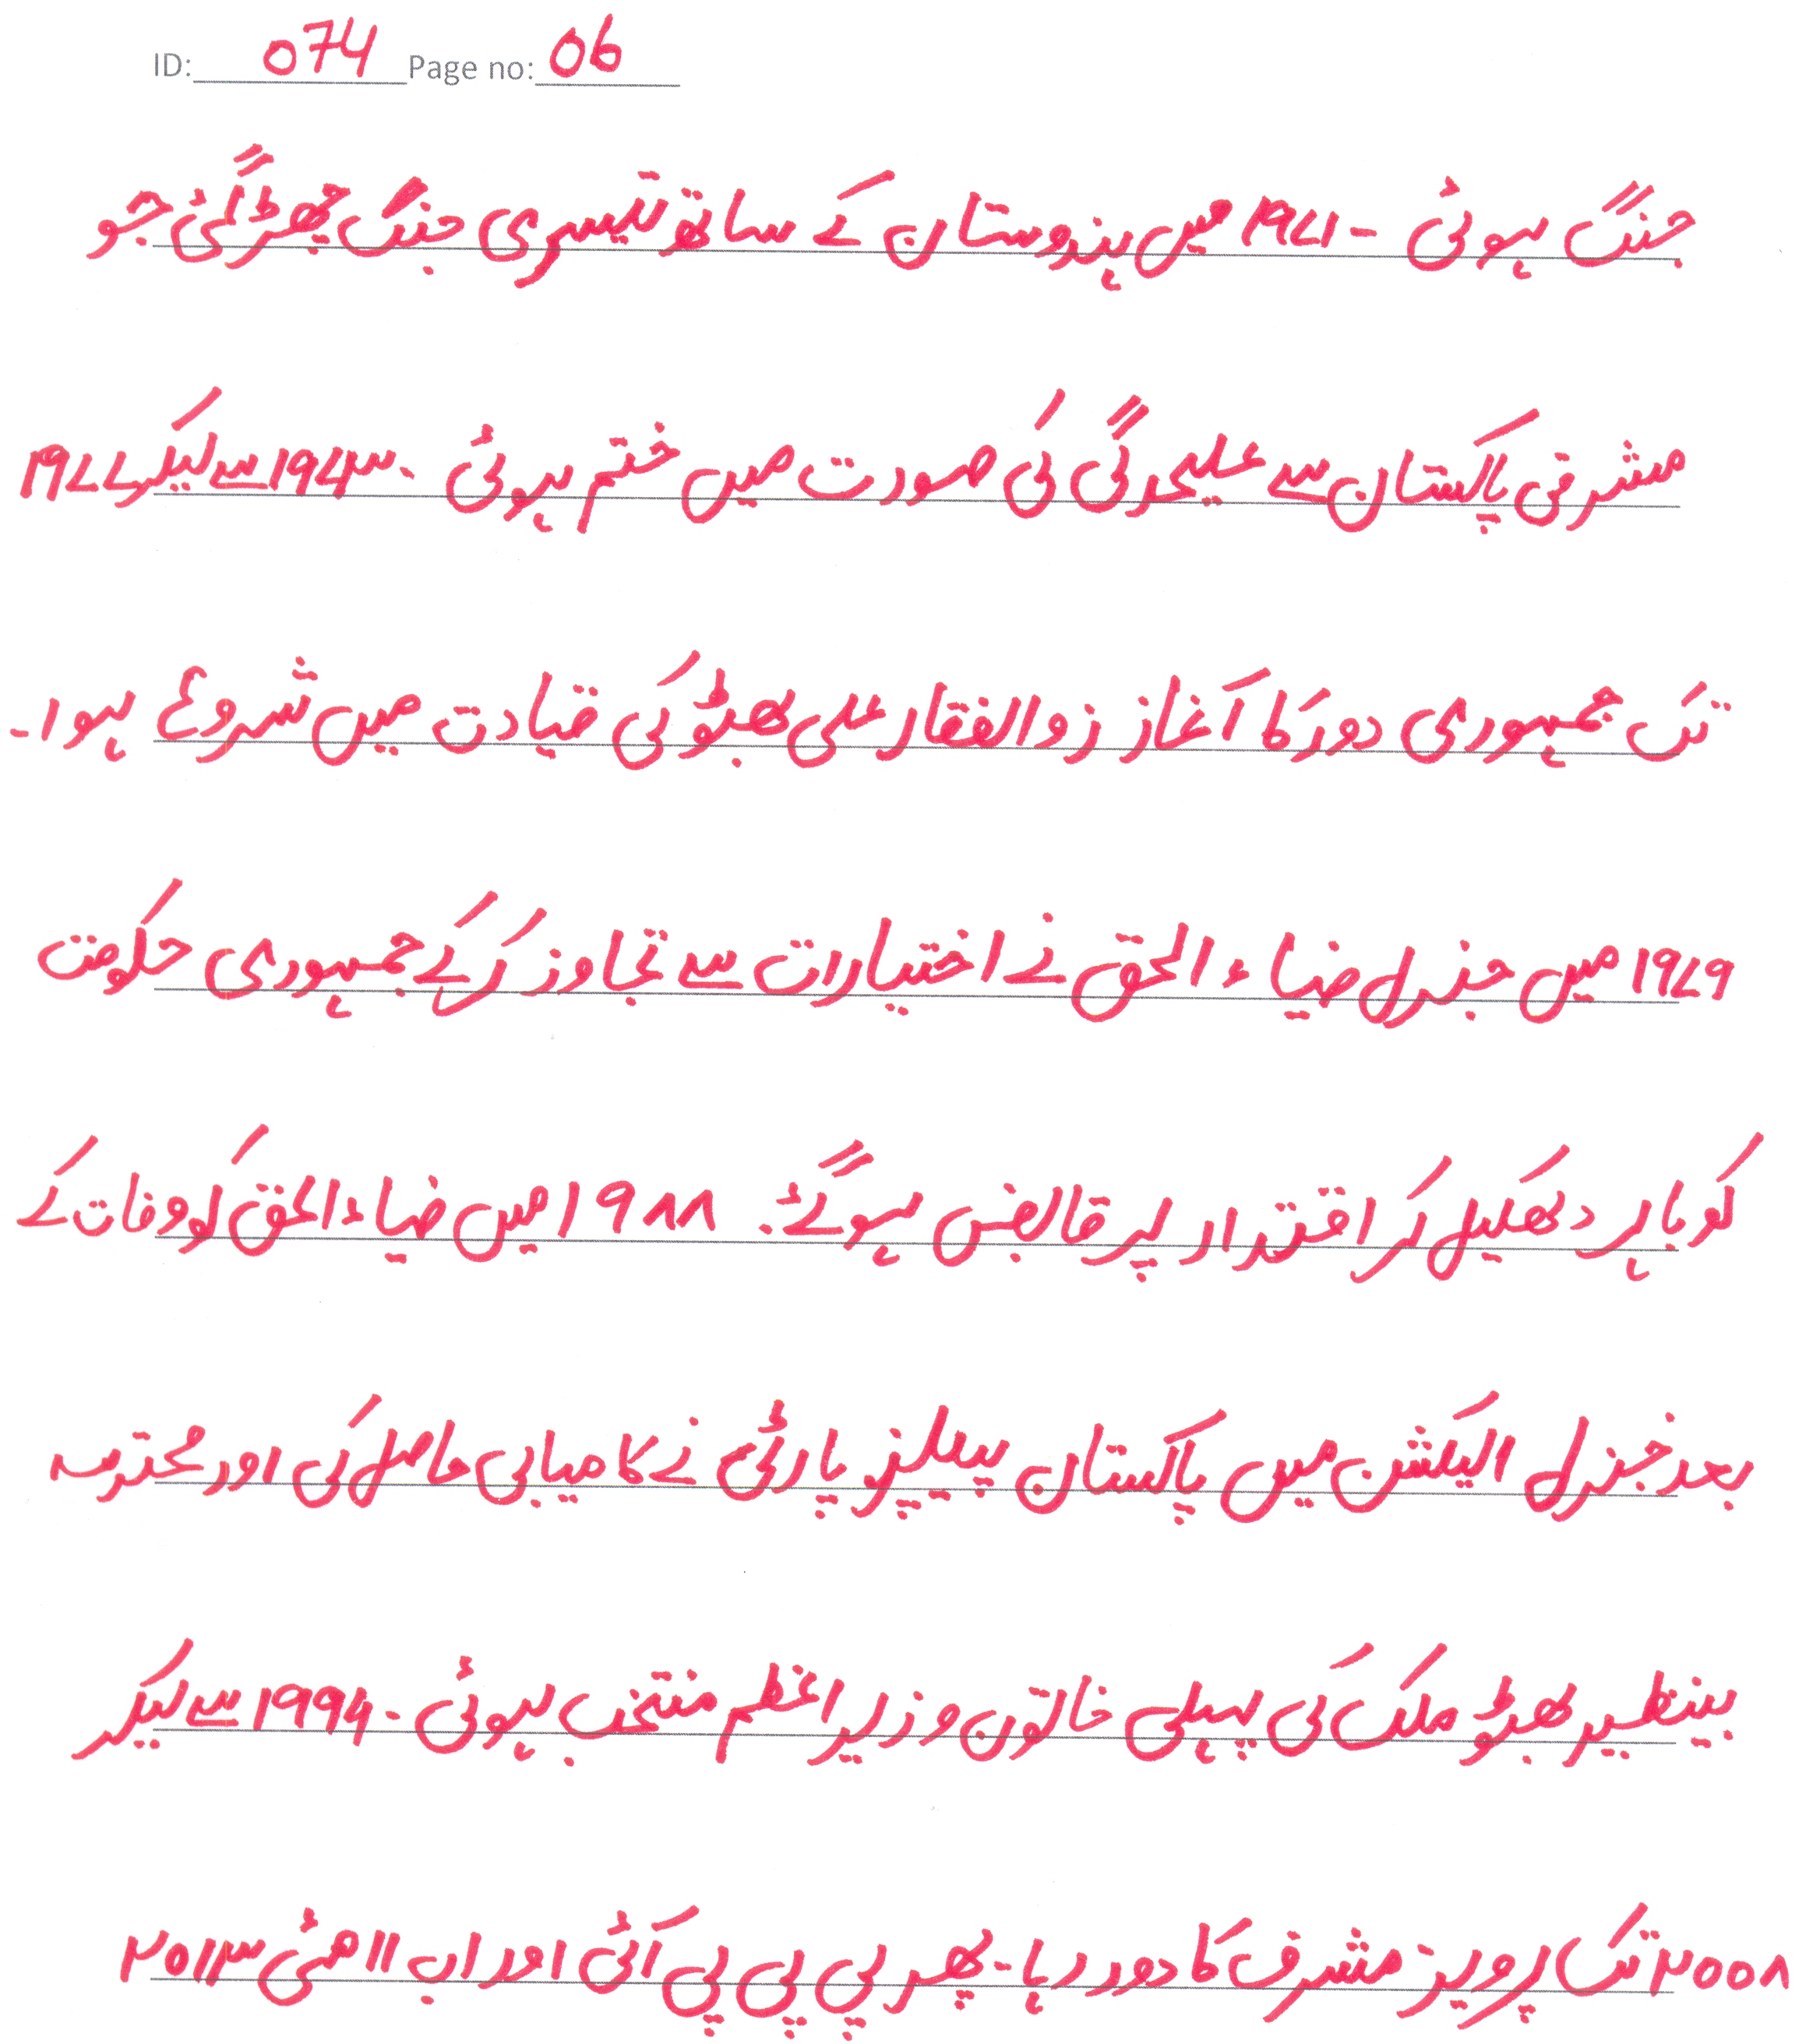 ID: 074 Page no: 06
جنگ ہوئی - ۱۹۷۱ میں ہندوستان کے ساتھ تیسری جنگ چھڑ گئی جو
مشرقی پاکستان سے علیحدگی کی صورت میں ختم ہوئی - ۱۹۷۳ سے لیکر ۱۹۷۷
تک جمہوری دور کا آغاز زوالفقار علی بھٹو کی قیادت میں شروع ہوا۔
۱۹۷۹ میں جنرل ضیاء الحق نے اختیارات سے تجاوز کرکے جمہوری حکومت
کو باہر دھکیل کر اقتدار پر قابض ہوگئے۔ ۱۹۸۸ میں ضیاءالحق کو وفات کے
بعد جنرل الیکشن میں پاکستان پیپلز پارٹی نے کامیابی حاصل کی اور محترمہ
بینظیر بھٹو ملک کی پہلی خاتون وزیراعظم منتخب ہوئی - ۱۹۹۴ سے لیکر
۲۰۰۸ تک پرویز مشرف کا دور رہا - پھر پی پی پی آئی اور اب ۱۱ مئی ۲۰۱۳